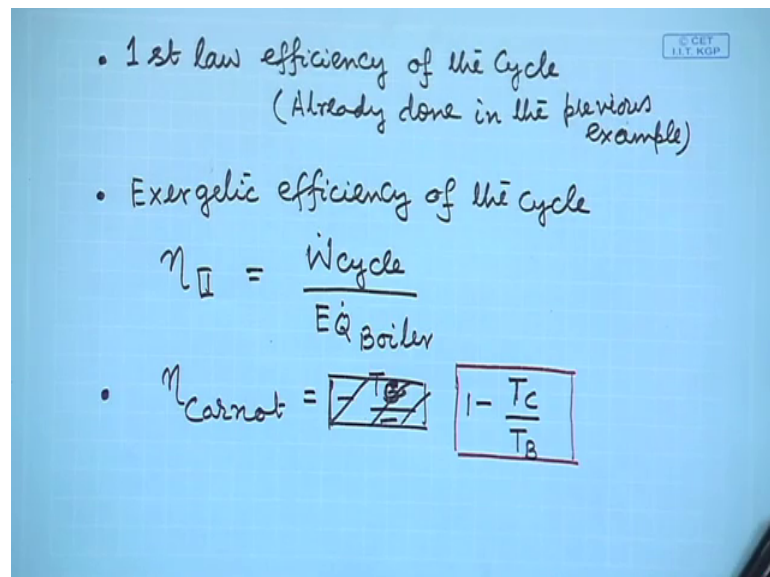 © CET
I.I.T. KGP
• 1st law efficiency of the Cycle
(Already done in the previous
example)
• Exergetic efficiency of the cycle
η_II = Ẇcycle / EQ̇ Boiler
• η Carnot = 1 - T_C / T_B